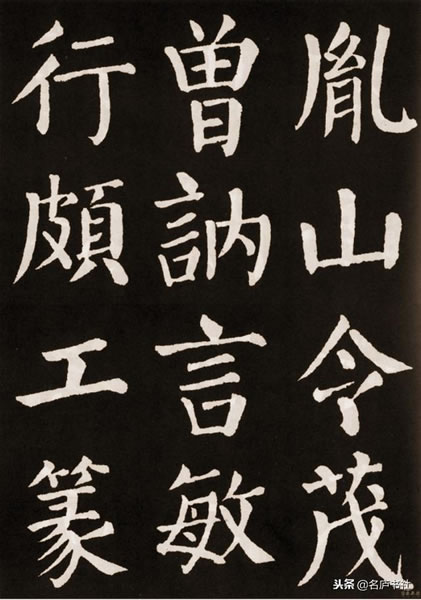 胤山令茂
曾訥言敏
行頗工篆
头条@名庐书社